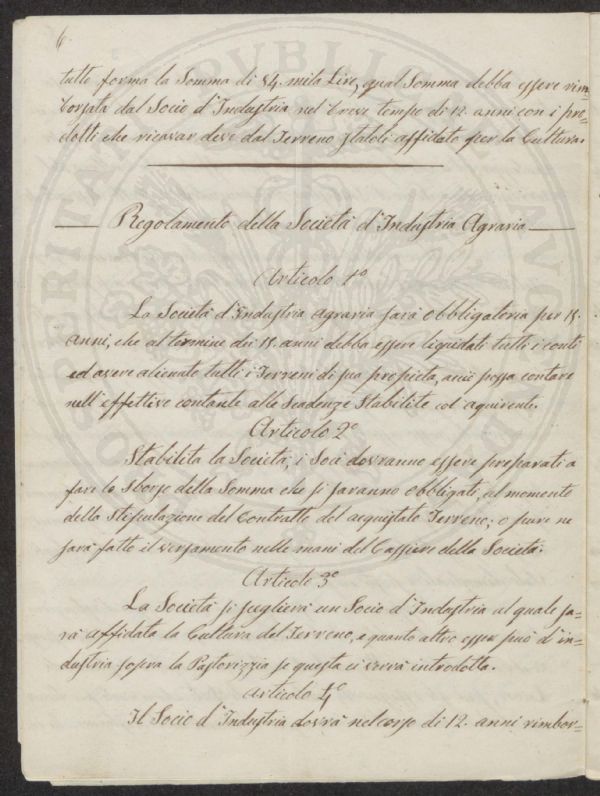 6.
tutto forma la Somma di 84. mila Lire, qual Somma debba essere rim=
borsata dal Socio d'Industria nel breve tempo di 12. anni con i pro=
dotti che ricavar deve dal Terreno statoli affidato per la Cultura.
Regolamento della Società d'Industria Agraria
Articolo 1°
La Società d'Industria agraria sarà obbligatoria per 15.
anni, che al termine dei 15. anni debba essere liquidati tutti i conti
ed avere alienato tutti i Terreni di sua propieta, acciò possa contare
nell'effettivo contante alle Scadenze Stabilite col aquirente.
Articolo 2°
Stabilita la Società, i Soci dovranno essere preparati a
fare lo Sborso della Somma che si saranno obbligati, al momento
della Stipulazione del Contratto del acquistato Terreno, o pure ne
sarà fatto il versamento nelle mani del Cassiere della Società.
Articolo 3°
La Società si scieglierà un Socio d'Industria al quale sa=
rà affidata la Cultura del Terreno, e quanto altro esser può d'in=
dustria sopra la Pastorizzia se questa ci verrà introdotta.
Articolo 4°
Il Socio d'Industria dovrà nel corso di 12. anni rimbor=